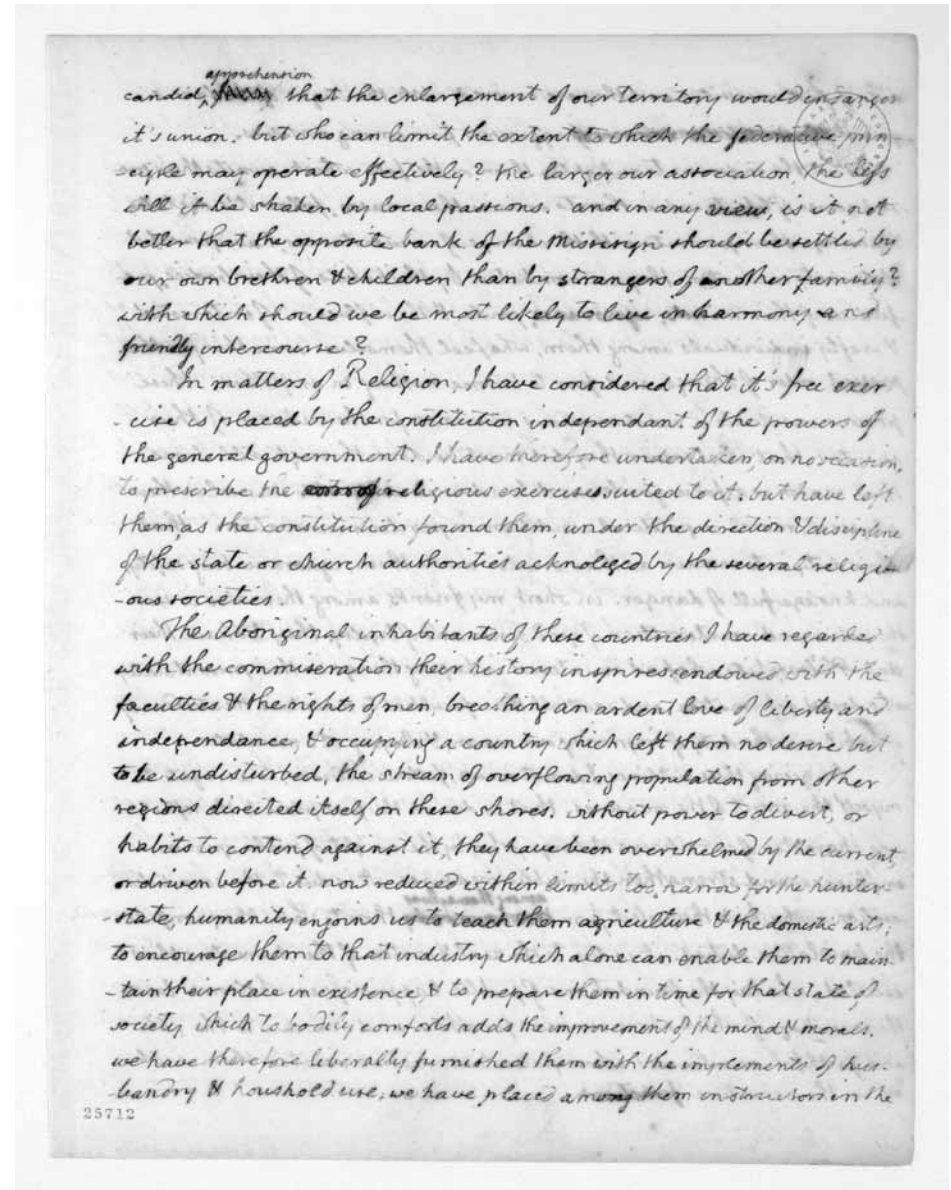 apprehension
candid, that the enlargement of our territory would endanger
it's union. but who can limit the extent to which the federative prin
-ciple may operate effectively? the larger our association the less
will it be shaken by local passions. and in any view, is it not
better that the opposite bank of the Missisipi should be settled by
our own brethren & children than by strangers of another family?
with which should we be most likely to live in harmony and
friendly intercourse?
In matters of Religion, I have considered that it's free exer
-cise is placed by the constitution independant of the powers of
the general government. I have therefore undertaken, on no occasion,
to prescribe the religious exercises suited to it. but have left
them, as the constitution found them, under the direction & discipline
of the state or church authorities acknoleged by the several religi
-ous societies
The Aboriginal inhabitants of these countries I have regarded
with the commiseration their history inspires. endowed with the
faculties & the rights of men, breathing an ardent love of liberty and
independance, & occupying a country which left them no desire but
to be undisturbed, the stream of overflowing population from other
regions directed itself on these shores. without power to divert, or
habits to contend against it, they have been overwhelmed by the current,
or driven before it. now reduced within limits too narrow for the hunter-
-state, humanity enjoins us to teach them agriculture & the domestic arts;
to encourage them to that industry which alone can enable them to main-
-tain their place in existence, & to prepare them in time for that state of
society, which to bodily comforts adds the improvement of the mind & morals.
we have therefore liberally furnished them with the implements of hus-
-bandry & houshold use; we have placed among them instructors in the
25712